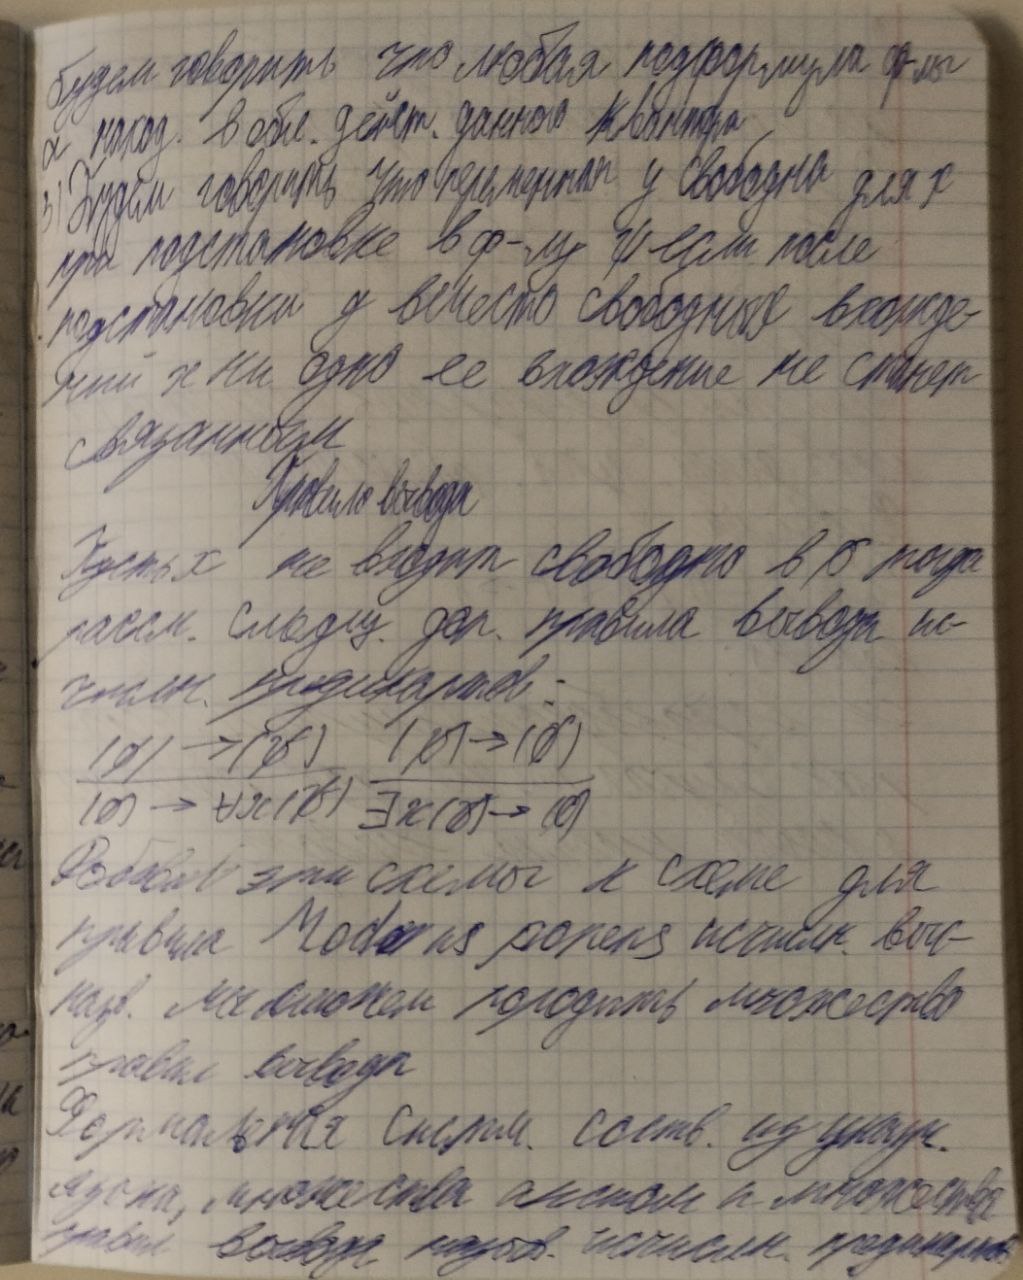 будем говорить что любая подформула ф-лы
α наход. в обл. дейст. данного квантора
3) Будем говорить что переменная y свободна для x
при подстановке в ф-лу ψ если после
подстановки y вместо свободных вхожде-
ний x ни одно ее вхождение не станет
связанным
Правило вывода
Пусть x не входит свободно в тогда
рассм. следущ. доп. правила вывода ис-
числ. предикатов:
Добавив эти схемы к схеме для
правила Modus ponens исчисл. выс-
казв. мы сможем породить множество
правил вывода
Формальная систем. соств. из указ.
языка, множества аксиом и множества
правил вывода назыв. исчисл. предикатов